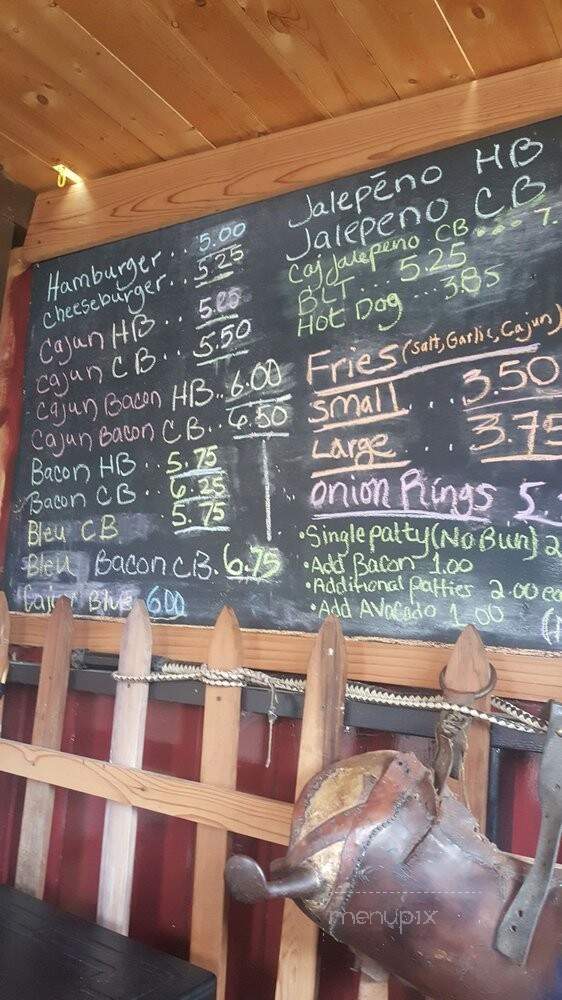 Hamburger.. 5.00
Cheeseburger.. 5.25
Cajun HB..
Cajun CB.. 5.50
Cajun Bacon HB.. 6.00
Cajun Bacon CB.. 6.50
Bacon HB.. 5.75
Bacon CB.. 6.25
Bleu CB 5.75
Bleu Bacon CB. 6.75
Cajun Blue 6.00
Jalepēno HB
Jalepeno CB
Caj Jalepeno CB... 7.
BLT... 5.25
Hot Dog... 3.85
Fries (Salt, Garlic, Cajun)
Small... 3.50
Large... 3.75
Onion Rings 5.
•Single patty (No Bun) 2
•Add Bacon 1.00
•Additional patties 2.00
•Add Avocado 1.00
menupix